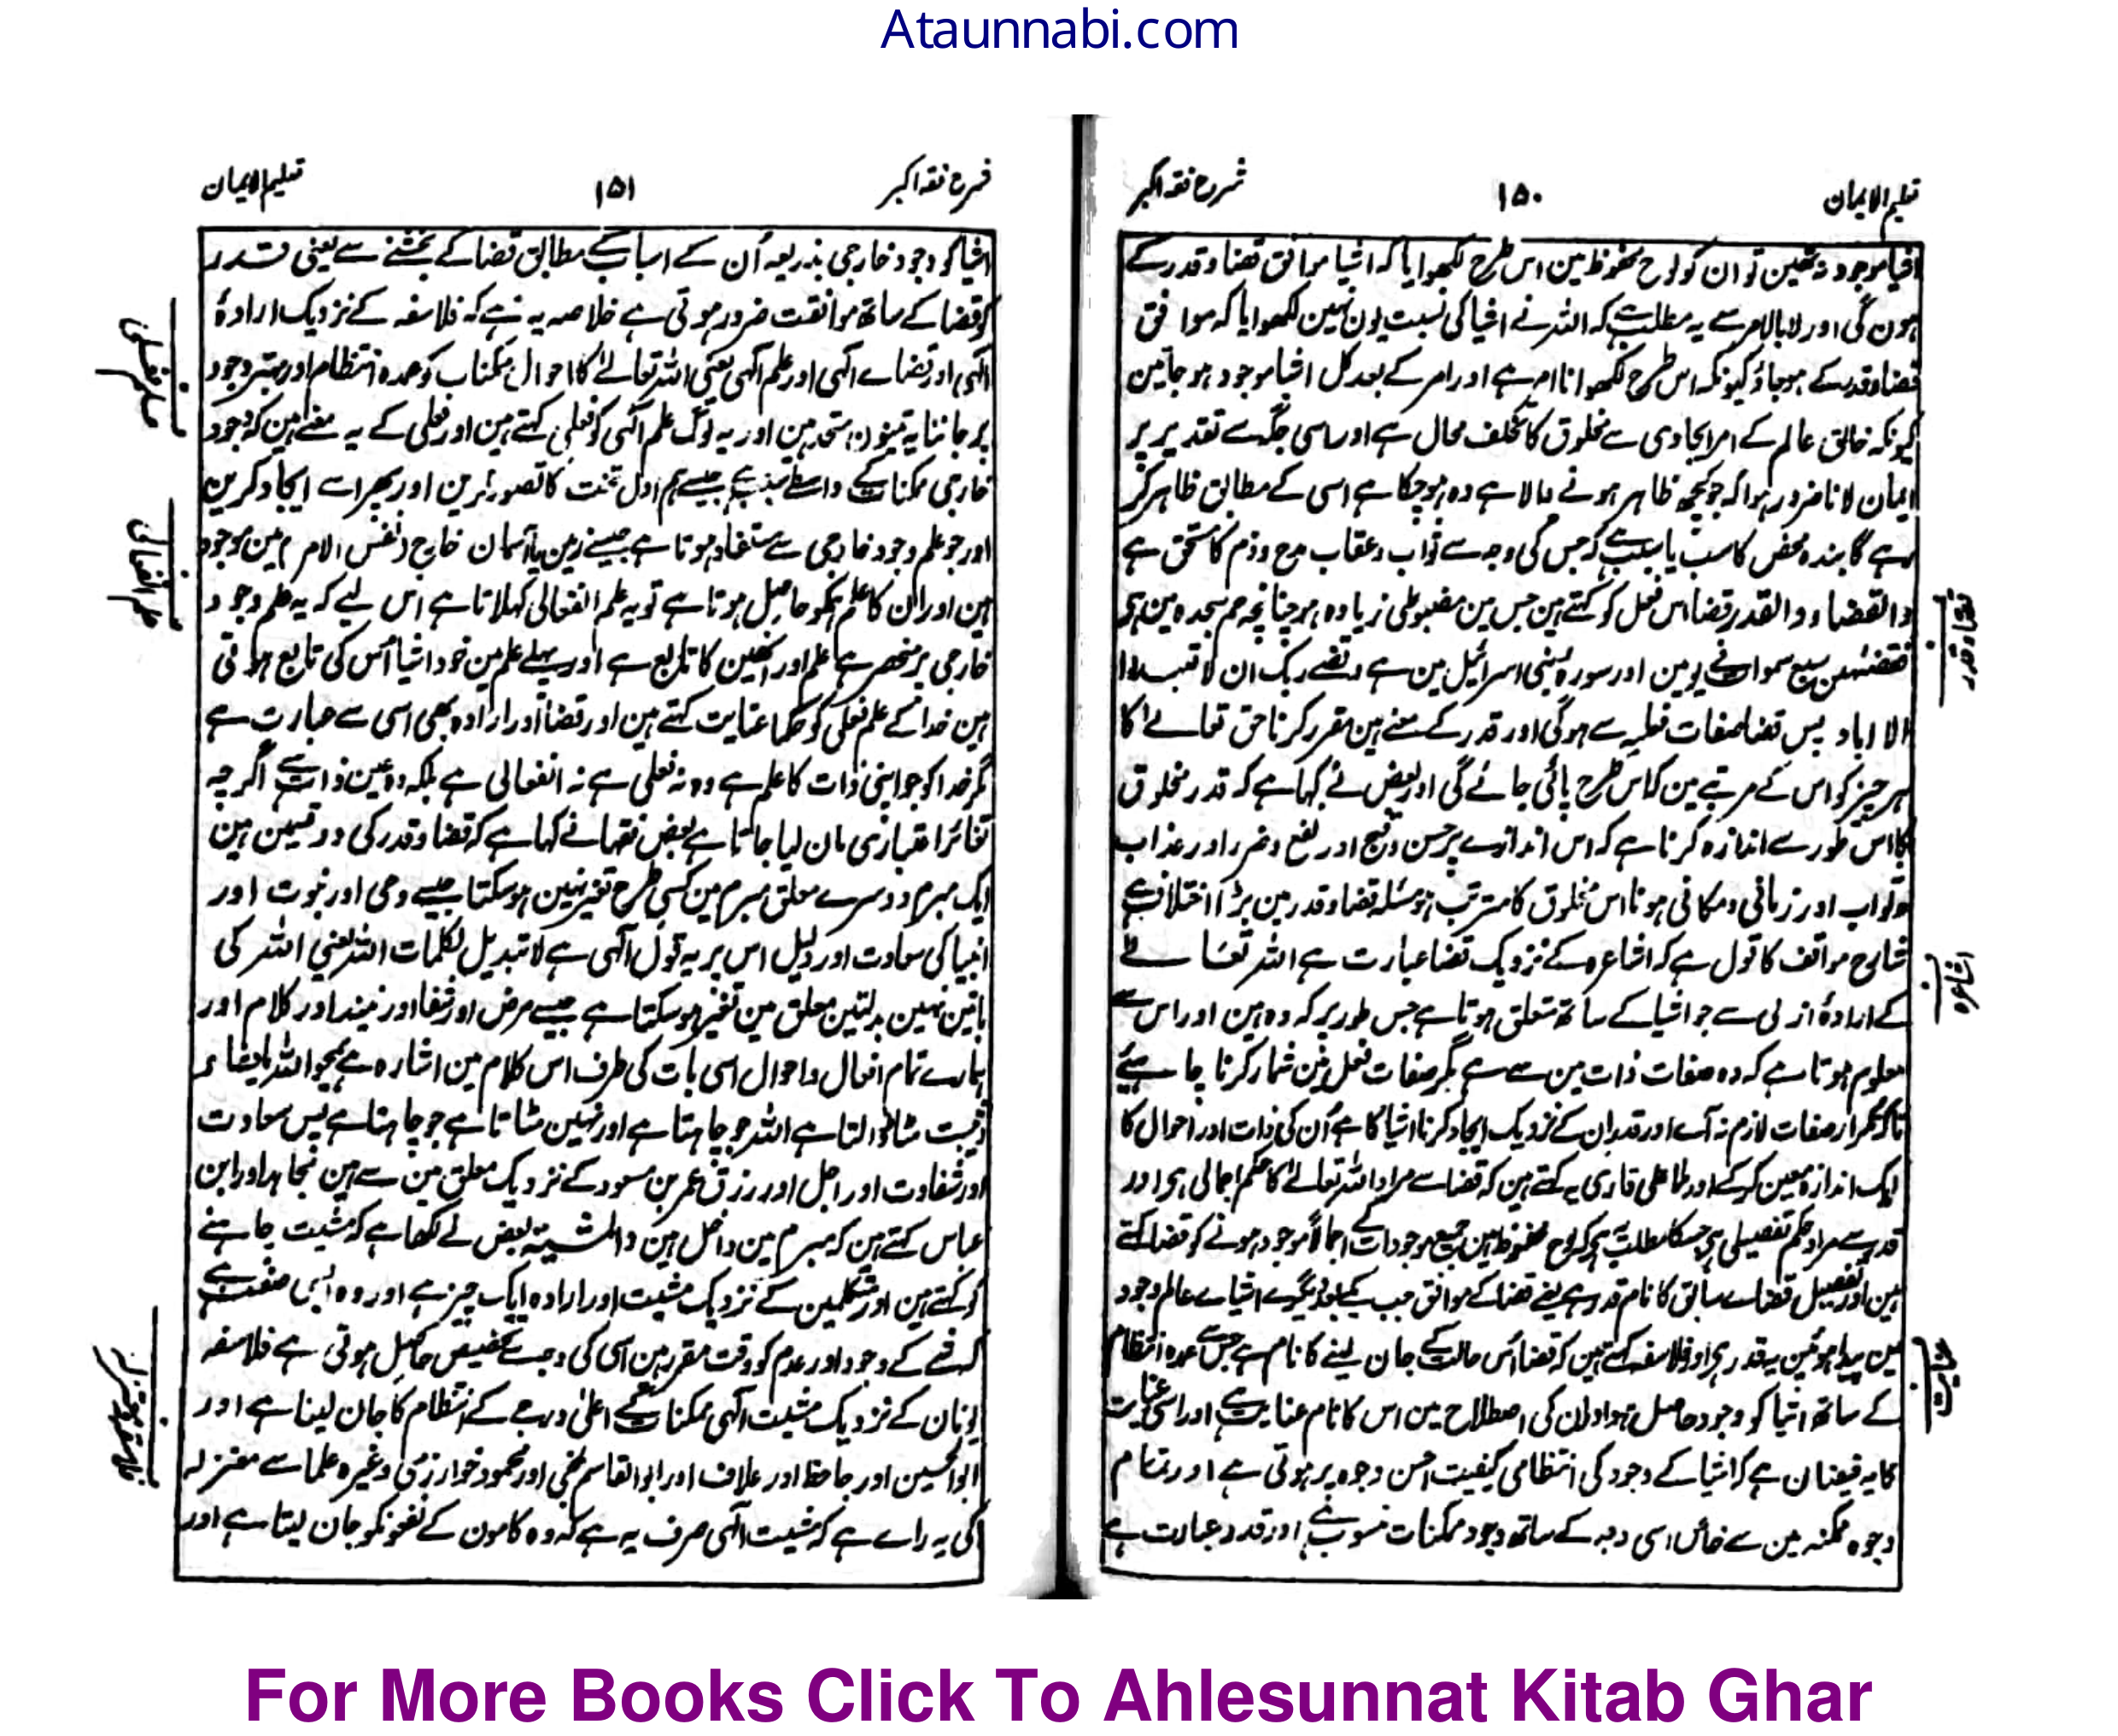 Ataunnabi.com
تعلیم الایمان ۱۵۰ شرح فقہ اکبر
اشیا موجود نہ تھین تو ان کو لوح محفوظ مین اس طرح لکھوایا کہ اشیا موافق قضا و قدر کے
ہون گی اور لا بالامر سے یہ مطلب ہے کہ اللہ نے اشیا کی نسبت یون نہین لکھوایا کہ موافق
قضا و قدر کے ہوجاؤ کیونکہ اس طرح لکھوانا امر ہے اور امر کے بعد کل اشیا موجود ہو جاتین
کیونکہ خالق عالم کے امر ایجادی سے مخلوق کا تخلف محال ہے اور اسی جگہ سے تقدیر پر
ایمان لانا ضرور ہوا کہ جو کچھ ظاہر ہونے والا ہے وہ ہوچکا ہے اسی کے مطابق ظاہر ہوکر
رہے گا بندہ محض کاسب یا سبب ہے کہ جس کی وجہ سے ثواب و عقاب مدح و ذم کا مستحق ہے
والقضاء والقدر قضا اس فعل کو کہتے ہین جس مین مضبوطی زیادہ ہو چنانچہ حم سجدہ مین ہی
فقضٰہن سبع سمٰوات فی یومین اور سورہ بنی اسرائیل مین ہے وقضے ربک ان لا تعبدوا
الا ایاہ پس قضا صفات فعلیہ سے ہوگی اور قدر کے معنے ہین مقرر کرنا حق تعالےٰ کا
ہر چیز کو اس کے مرتبے مین کہ اس طرح پائی جائے گی اور بعض نے کہا ہے کہ قدر مخلوق
کا اس طور سے اندازہ کرنا ہے کہ اس اندازے پر حسن و قبح اور نفع و ضرر اور عذاب
و ثواب اور زمانی و مکانی ہونا اس مخلوق کا مترتب ہو مسئلہ قضا و قدر مین بڑا اختلاف ہے
شارح مواقف کا قول ہے کہ اشاعرہ کے نزدیک قضا عبارت ہے اللہ تعالےٰ
کے ارادۂ ازلی سے جو اشیا کے ساتھ متعلق ہوتا ہے جس طور پر کہ وہ ہین اور اس سے
معلوم ہوتا ہے کہ وہ صفات ذات مین سے ہے مگر صفات فعل مین شمار کرنا چاہیئے
تاکہ تکرار صفات لازم نہ آے اور قدر ان کے نزدیک ایجاد کرنا اشیا کا ہے اُن کی ذات اور احوال کا
ایک اندازہ معین کرکے اور ملا علی قاری یہ کہتے ہین کہ قضا سے مراد اللہ تعالےٰ کا حکم اجمالی ہی اور
قدر سے مراد حکم تفصیلی ہی جسکا مطلب یہ ہی کہ لوح محفوظ مین جمیع موجودات کے اجمالاً موجود ہونے کو قضا کہتے
ہین اور تفصیل قضاے سابق کا نام قدر ہے یعنے قضا کے موافق جب یکے بعد دیگرے اشیاے عالم وجود
مین پیدا ہوئین یہ قدر ہی اور فلاسفہ کہتے ہین کہ قضا اُس حالت کے جان لینے کا نام ہے جس سے عمدہ انتظام
کے ساتھ اشیا کو وجود حاصل ہو اور ان کی اصطلاح مین اس کا نام عنایت ہے اور اسی عنایت
کا یہ فیضان ہے کہ اشیا کے وجود کی انتظامی کیفیت احسن وجوہ پر ہوتی ہے اور تمام
وجوہ ممکنہ مین سے خاص اسی وجہ کے ساتھ وجود ممکنات منسوب ہے اور قدر عبارت ہے
قضا و قدر
اشاعرہ
عنایت
تعلیم الایمان ۱۵۱ شرح فقہ اکبر
اشیا کو وجود خارجی بذریعہ اُن کے اسباب کے مطابق قضا کے بخشنے سے یعنی قدر
کو قضا کے ساتھ موافقت ضرور ہوتی ہے خلاصہ یہ ہے کہ فلاسفہ کے نزدیک ارادۂ
الٰہی اور قضاے الٰہی اور علم الٰہی یعنی اللہ تعالےٰ کا احوال ممکنات کو عمدہ انتظام اور بہتر وجود
پر جاننا یہ تینون متحد ہین اور یہ لوگ علم الٰہی کو فعلی کہتے ہین اور فعلی کے یہ معنے ہین کہ وجود
خارجی ممکنات کے واسطے سبب ہے جیسے ہم اول تخت کا تصور کرین اور پھر اسے ایجاد کرین
اور جو علم وجود خارجی سے مستفاد ہوتا ہے جیسے زمین یا آسمان خارج و نفس الامر مین موجود
ہین اور ان کا علم ہمکو حاصل ہوتا ہے تو یہ علم انفعالی کہلاتا ہے اس لیے کہ یہ علم وجود
خارجی پر منحصر ہے علم اور انھین کا تابع ہے اور پہلے علم مین خود اشیا اُس کی تابع ہوتی
ہین خدا کے علم فعلی کو حکما عنایت کہتے ہین اور قضا اور ارادہ بھی اسی سے عبارت ہے
مگر خدا کو جو اپنی ذات کا علم ہے وہ نہ فعلی ہے نہ انفعالی ہے بلکہ وہ عین ذات ہے اگرچہ
تغائر اعتباری مان لیا جاتا ہے بعض فقہا نے کہا ہے کہ قضا و قدر کی دو قسمین ہین
ایک مبرم دوسرے معلق مبرم مین کسی طرح تغیر نہین ہوسکتا جیسے وحی اور نبوت اور
انبیا کی سعادت اور دلیل اس پر یہ قول الٰہی ہے لا تبدیل لکلمات اللہ یعنی اللہ کی
باتین نہین بدلتین معلق مین تغیر ہوسکتا ہے جیسے مرض اور شفا اور نیند اور کلام اور
ہمارے تمام افعال و احوال اسی بات کی طرف اس کلام مین اشارہ ہے یمحوا اللہ ما یشاء
ویثبت مٹا ڈالتا ہے اللہ جو چاہتا ہے اور نہین مٹاتا ہے جو چاہتا ہے پس سعادت
اور شقاوت اور اجل اور رزق عمر بن مسعود کے نزدیک معلق مین سے ہین مجاہد اور ابن
عباس کہتے ہین کہ مبرم مین داخل ہین والمشیۃ بعض نے لکھا ہے کہ مشیت چاہنے
کو کہتے ہین اور متکلمین کے نزدیک مشیت اور ارادہ ایک چیز ہے اور وہ ایسی صفت ہے
کہ شے کے وجود اور عدم کو وقت مقرر مین اسی کی وجہ سے تخصیص حاصل ہوتی ہے فلاسفہ
یونان کے نزدیک مشیت الٰہی ممکنات کے اعلیٰ درجے کے انتظام کا جان لینا ہے اور
ابوالحسین اور جاحظ اور علاف اور ابوالقاسم بلخی اور محمود خوارزمی وغیرہ علماے معتزلہ
کی یہ راے ہے کہ مشیت الٰہی صرف یہ ہے کہ وہ کامون کے نفع کو جان لیتا ہے اور
علم فعلی
علم انفعالی
For More Books Click To Ahlesunnat Kitab Ghar